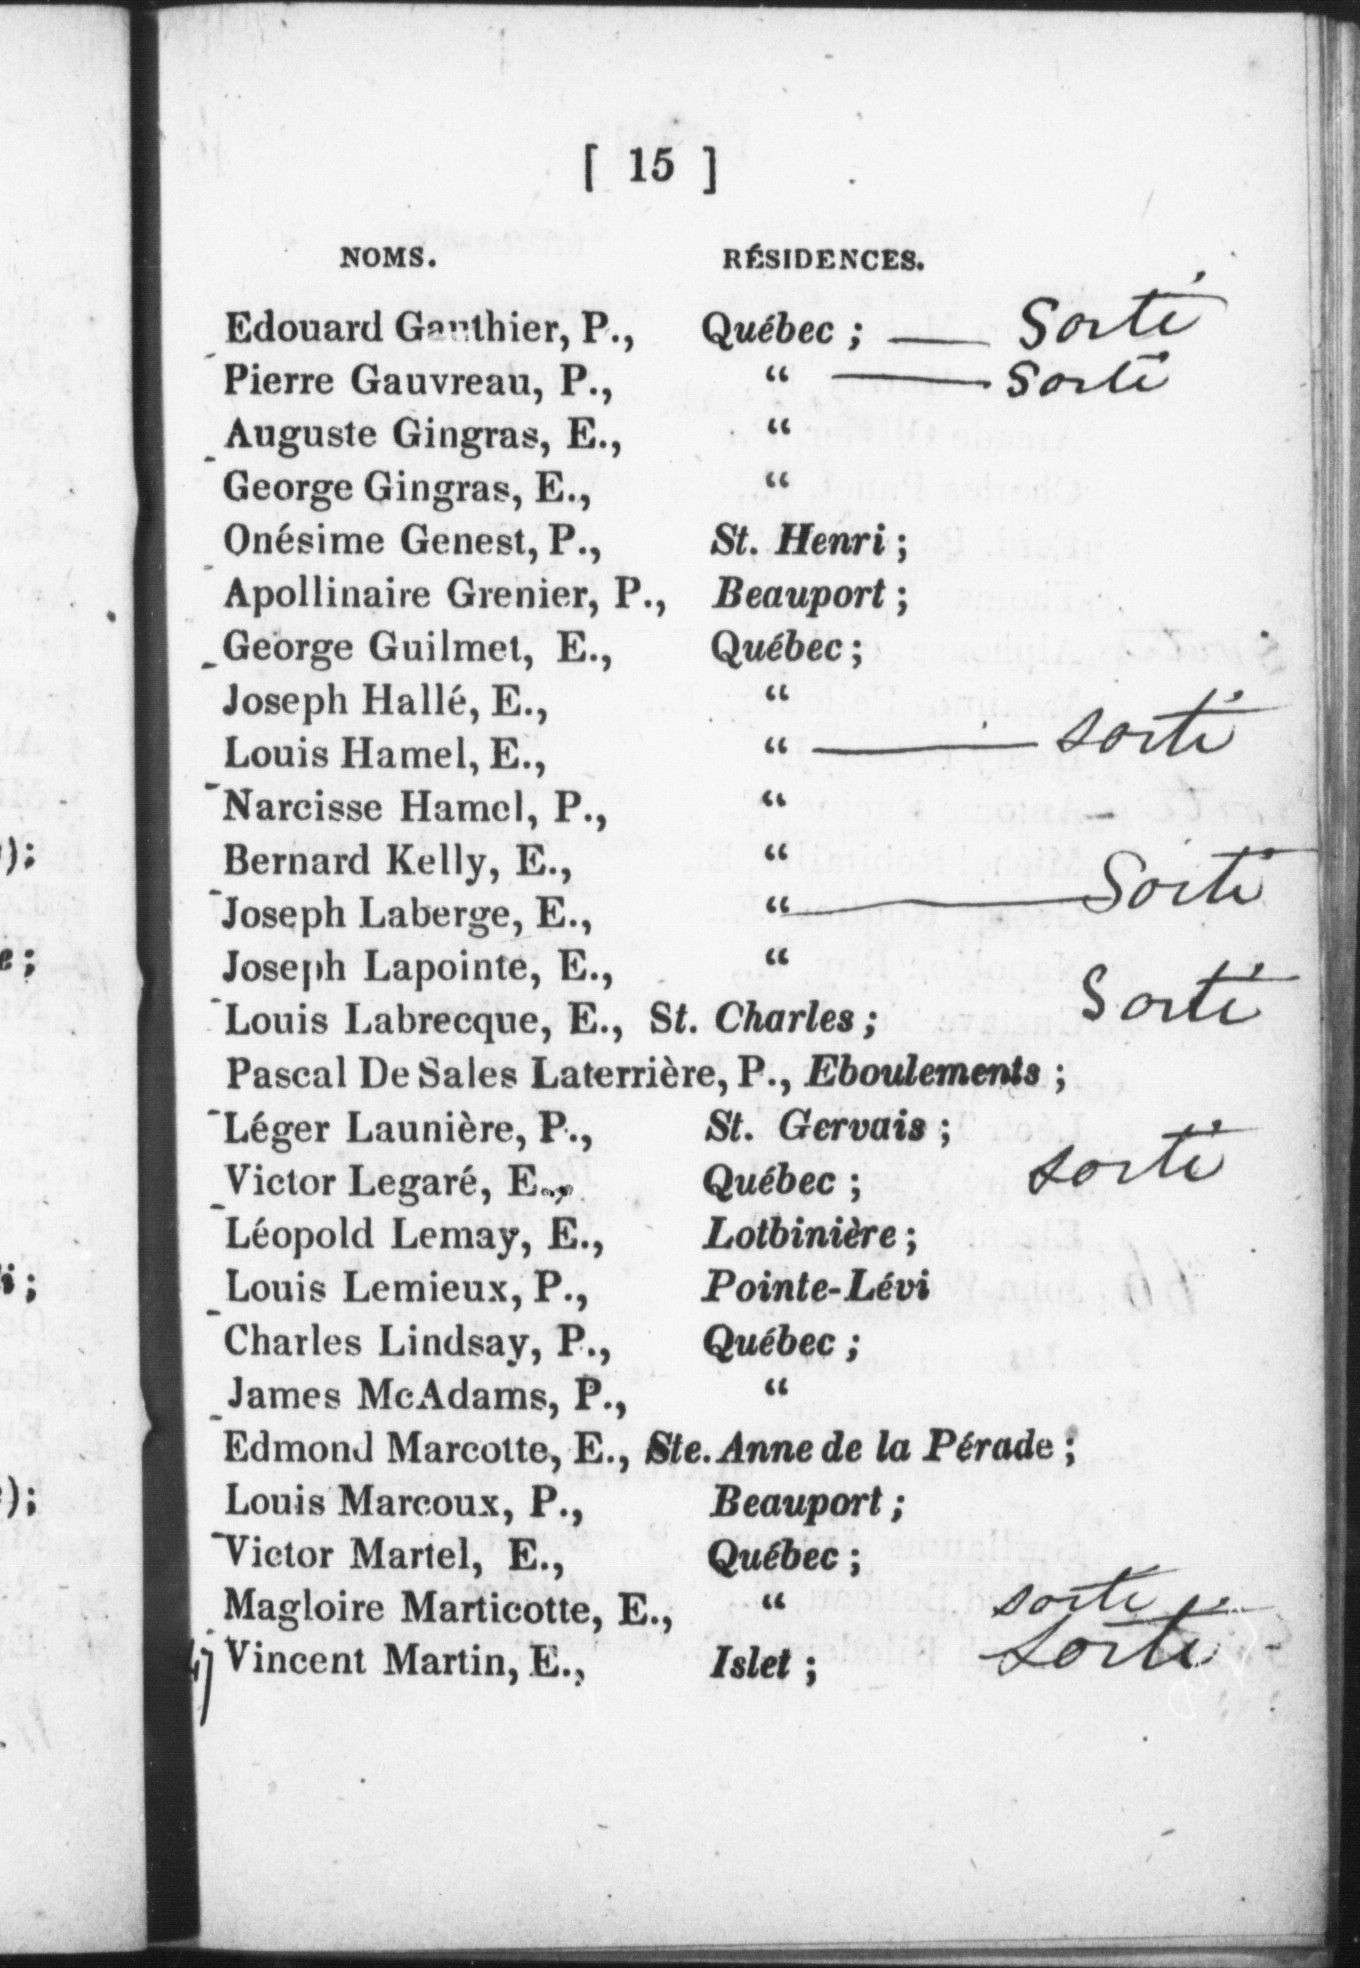 [ 15 ]
NOMS. RÉSIDENCES.
Edouard Gauthier, P., Québec ; — Sorti
Pierre Gauvreau, P., “ — Sorti
Auguste Gingras, E., “
George Gingras, E., “
Onésime Genest, P., St. Henri ;
Apollinaire Grenier, P., Beauport ;
George Guilmet, E., Québec ;
Joseph Hallé, E., “
Louis Hamel, E., “ — sorti
Narcisse Hamel, P., “
Bernard Kelly, E., “
Joseph Laberge, E., “ — Sorti
Joseph Lapointe, E., “
Louis Labrecque, E., St. Charles ; Sorti
Pascal De Sales Laterrière, P., Eboulements ;
Léger Launière, P., St. Gervais ;
Victor Legaré, E., Québec ; sorti
Léopold Lemay, E., Lotbinière ;
Louis Lemieux, P., Pointe-Lévi
Charles Lindsay, P., Québec ;
James McAdams, P., “
Edmond Marcotte, E., Ste. Anne de la Pérade ;
Louis Marcoux, P., Beauport ;
Victor Martel, E., Québec ;
Magloire Marticotte, E., “ sorti
Vincent Martin, E., Islet ; Sorti